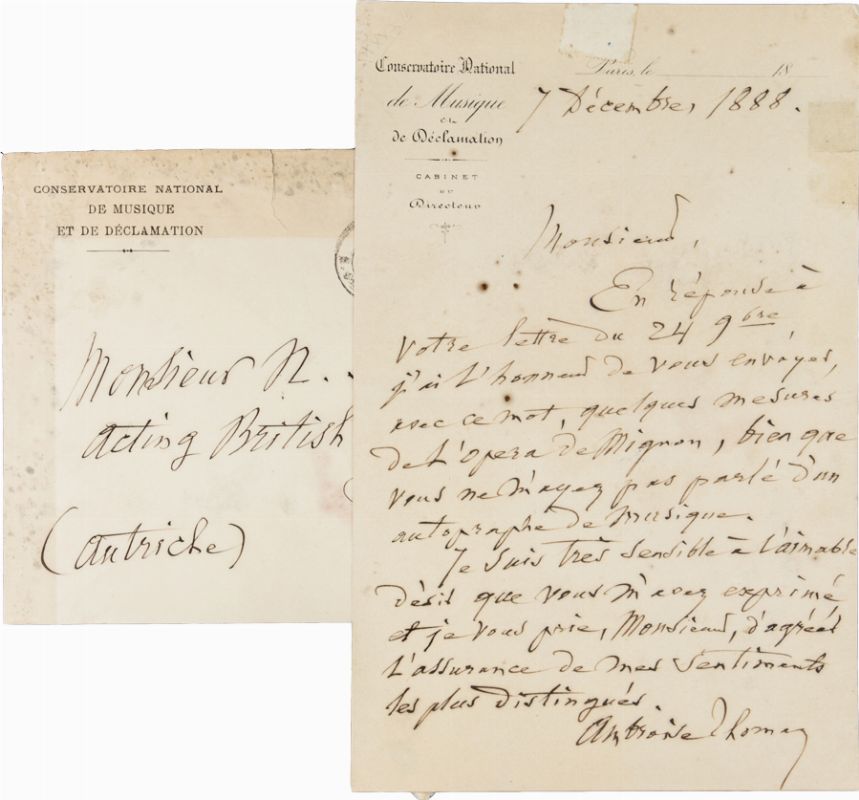 CONSERVATOIRE NATIONAL
DE MUSIQUE
ET DE DÉCLAMATION
Monsieur N.
Acting British
(Autriche)
Conservatoire National
de Musique
et
de Déclamation
CABINET
DU
Directeur
Paris, le 18
7 Décembre, 1888.
Monsieur,
En réponse à
votre lettre du 24 9bre,
j'ai l'honneur de vous envoyer,
avec ce mot, quelques mesures
de l'opera de Mignon, bien que
vous ne m'ayez pas parlé d'un
autographe de musique.
Je suis très sensible à l'aimable
désir que vous m'avez exprimé
et je vous prie, Monsieur, d'agréer
l'assurance de mes sentiments
les plus distingués.
Ambroise Thomas